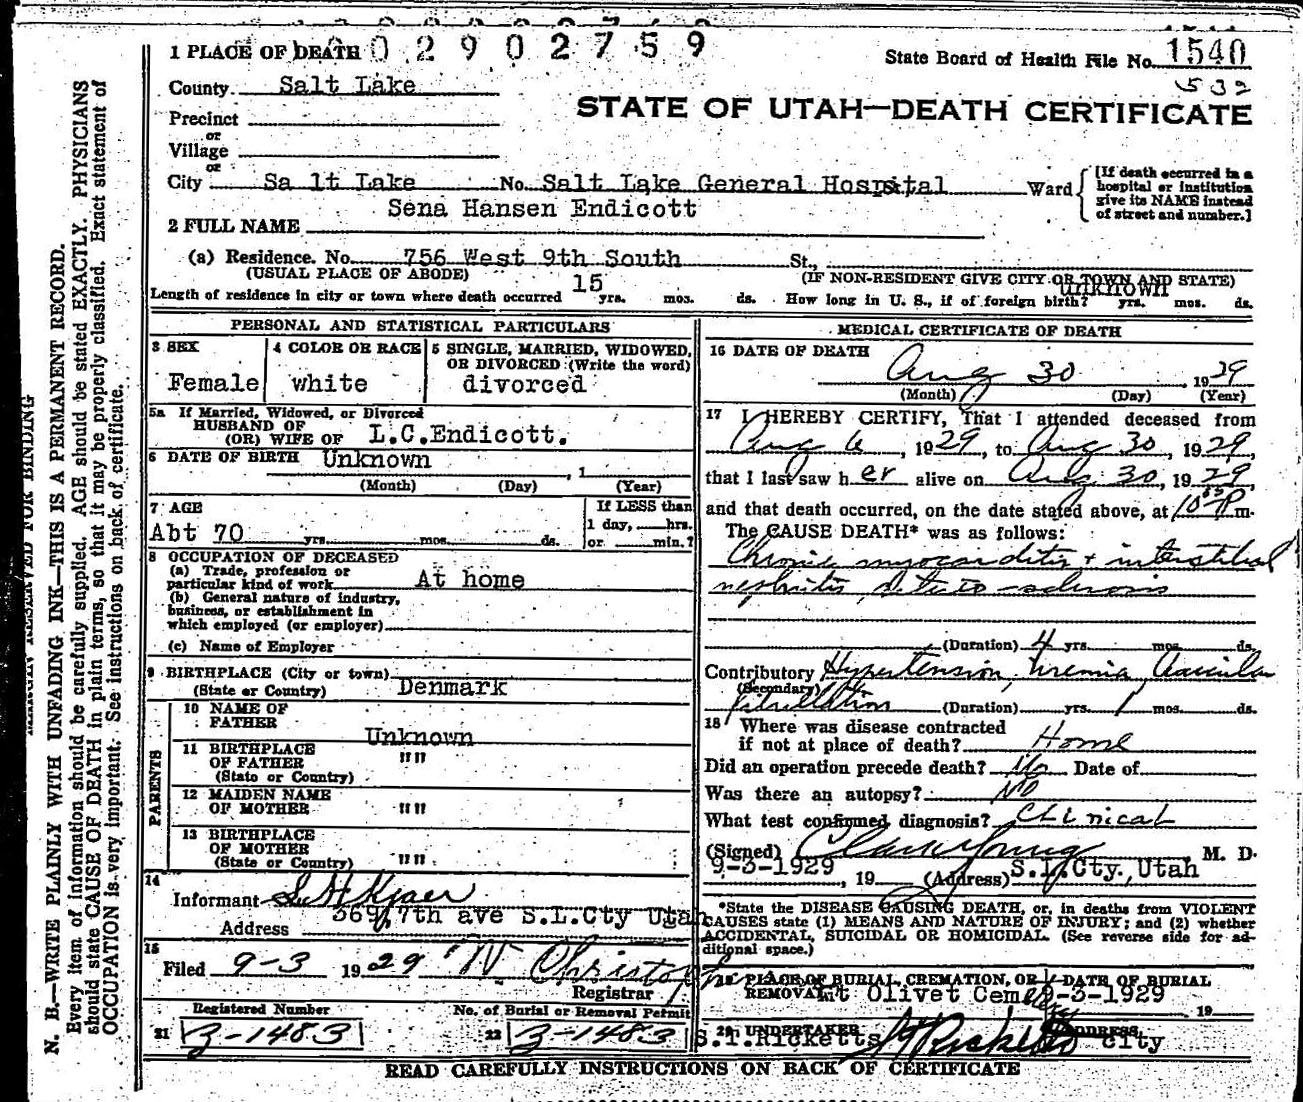 1 PLACE OF DEATH 0 2 9 0 2 7 5 9
State Board of Health File No. 1540
532
County. Salt Lake
STATE OF UTAH—DEATH CERTIFICATE
Precinct
or
Village
or
City Sa lt Lake No. Salt Lake General Hospital Ward
[If death occurred in a hospital or institution give its NAME instead of street and number.]
Sena Hansen Endicott
2 FULL NAME
(a) Residence. No. 756 West 9th South St.,
(USUAL PLACE OF ABODE) (IF NON-RESIDENT GIVE CITY OR TOWN AND STATE)
Length of residence in city or town where death occurred 15 yrs. mos. ds. How long in U. S., if of foreign birth? unknown yrs. mos. ds.
PERSONAL AND STATISTICAL PARTICULARS
3 SEX 4 COLOR OR RACE 5 SINGLE, MARRIED, WIDOWED,
OR DIVORCED (Write the word)
Female white divorced
5a If Married, Widowed, or Divorced
HUSBAND OF
(OR) WIFE OF L.C.Endicott.
6 DATE OF BIRTH Unknown , 1
(Month) (Day) (Year)
7 AGE If LESS than
1 day, hrs.
Abt 70 yrs. mos. ds. or min.?
8 OCCUPATION OF DECEASED
(a) Trade, profession or
particular kind of work At home
(b) General nature of industry,
business, or establishment in
which employed (or employer)
(c) Name of Employer
9 BIRTHPLACE (City or town)
(State or Country) Denmark
PARENTS
10 NAME OF
FATHER Unknown
11 BIRTHPLACE
OF FATHER " "
(State or Country)
12 MAIDEN NAME
OF MOTHER " "
13 BIRTHPLACE
OF MOTHER
(State or Country) " "
14
Informant Kjaer
Address 369 7th ave S.L.Cty Utah
15
Filed 9-3 1929
Registrar
Registered Number No. of Burial or Removal Permit
21 3-1483 22 3-1483
MEDICAL CERTIFICATE OF DEATH
16 DATE OF DEATH
Aug 30 , 1929
(Month) (Day) (Year)
17 I HEREBY CERTIFY, That I attended deceased from
Aug 6, 1929, to Aug 30, 1929,
that I last saw her alive on Aug 30, 1929,
and that death occurred, on the date stated above, at 10 P m.
The CAUSE DEATH* was as follows:
Chronic myocarditis + interstitial
nephritis, due to sclerosis
(Duration) 4 yrs. mos. ds.
Contributory Hypertension, Uremia, Auricular
(Secondary)
Fibrillation (Duration) yrs. 1 mos. ds.
18 Where was disease contracted
if not at place of death? Home
Did an operation precede death? No Date of
Was there an autopsy? No
What test confirmed diagnosis? Clinical
(Signed) Clark Young M. D.
9-3-1929 , 19 (Address) S.L.Cty., Utah
*State the DISEASE CAUSING DEATH, or, in deaths from VIOLENT
CAUSES state (1) MEANS AND NATURE OF INJURY; and (2) whether
ACCIDENTAL, SUICIDAL OR HOMICIDAL. (See reverse side for ad-
ditional space.)
19 PLACE OF BURIAL, CREMATION, OR DATE OF BURIAL
REMOVAL Mt Olivet Cem 9-3-1929
19
20 UNDERTAKER ADDRESS
S.T.Ricketts city
READ CAREFULLY INSTRUCTIONS ON BACK OF CERTIFICATE
MARGIN RESERVED FOR BINDING
N. B.—WRITE PLAINLY WITH UNFADING INK—THIS IS A PERMANENT RECORD.
Every item of information should be carefully supplied. AGE should be stated EXACTLY. PHYSICIANS
should state CAUSE OF DEATH in plain terms, so that it may be properly classified. Exact statement of
OCCUPATION is very important. See instructions on back of certificate.